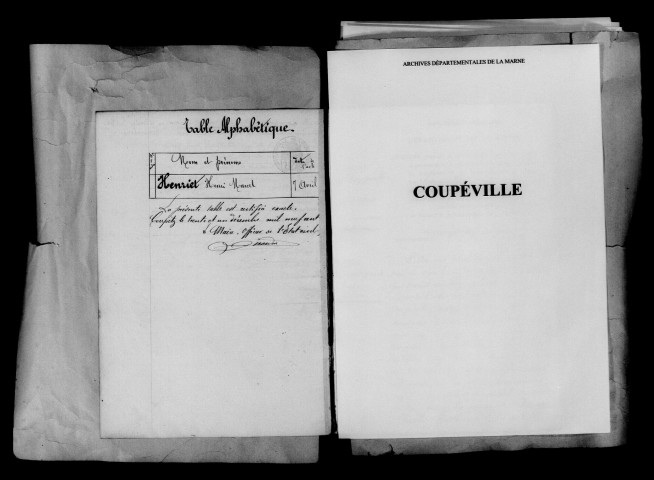 Table Alphabétique.
Noms et prénoms
Henriet Henri Marcel 7 Avril
La présente table est certifiée exacte.
Coupetz le trente et un décembre mil neuf cent
Maire. Officier de l'État civil
ARCHIVES DÉPARTEMENTALES DE LA MARNE
COUPÉVILLE